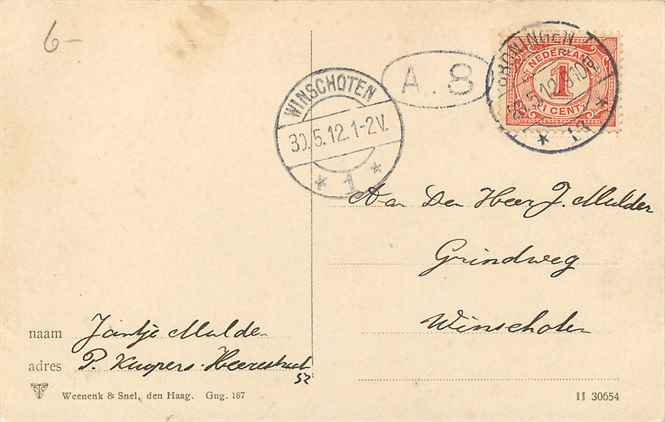 6-
WINSCHOTEN
30.5.12.1-2V.
1
A.8
GRONINGEN
NEDERLAND
1
1 CENT
Aan Den Heer J. Mulder
Grindweg
Winschoten
naam Jantje Mulder
adres P. Kuipers Heerestraat
52
Weenenk & Snel, den Haag. Gng. 187
II 30654